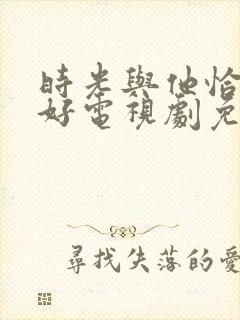 時光與他恰
好電視劇免
尋找失落的愛